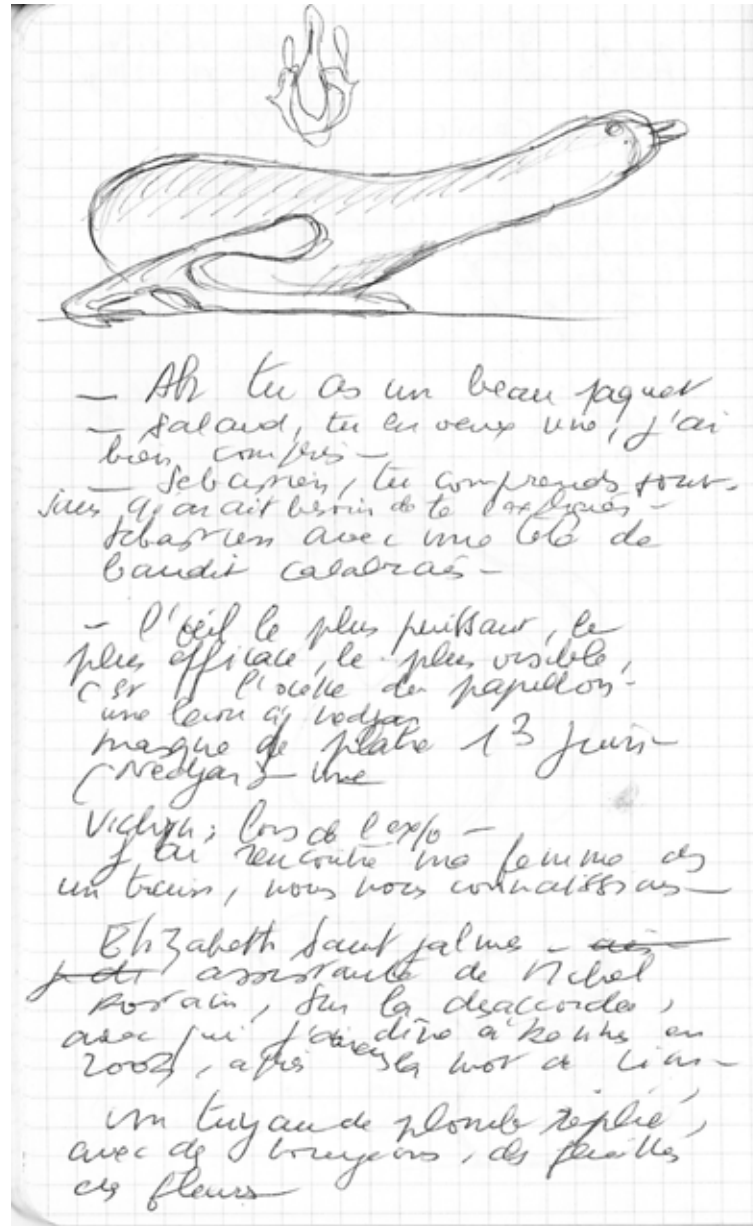 — Ah tu as un beau paquet
— Salaud, tu en veux une, j'ai
bien compris —
— Sébastien, tu comprends sans
qu'on ait besoin de t'expliquer —
Sébastien avec une tête de
bandit calabrais —
— l'œil le plus puissant, le
plus efficace, le plus visible,
c'est l'ocelle du papillon —
une
masque de platre 13 juin —
(Nedjar) — une
lors de l'expo —
J'ai rencontré ma femme ds
un train, nous nous connaissions —
Elizabeth Saint Jalmes —
assistante de Michel
Rostain, sur la desaccordée,
avec qui j'avais diné à Rennes en
2003, après la mort de
un tuyau de plomb replié,
avec des bourgeons, des feuilles
des fleurs